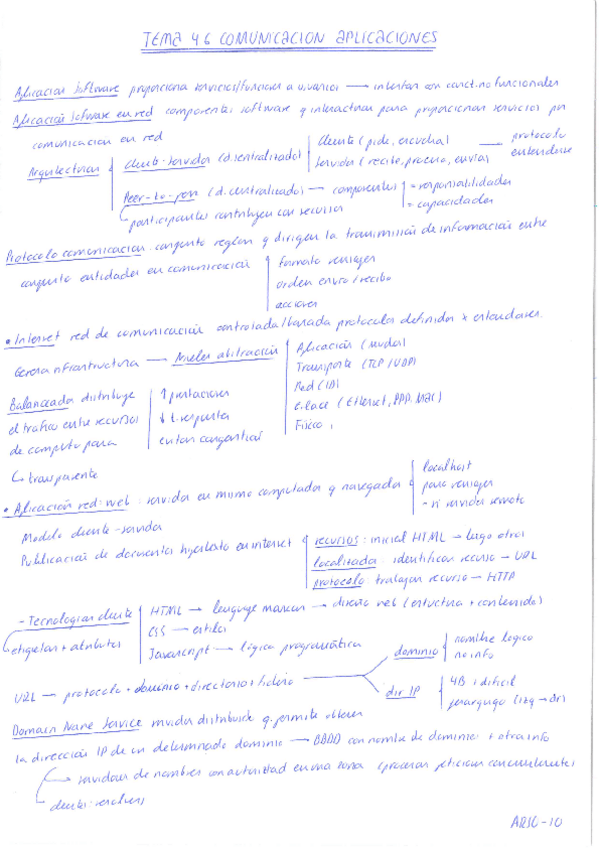 TEMA 4.6 COMUNICACION APLICACIONES
Aplicacion Software proporciona servicios/funciones a usuarios → interfaz con conctno funcionales
Aplicación Software en red componentes software q interactuan para proporcionar servicios por
comunicacion en red
Arquitecturas
cliente-servidor (d. centralizado)
cliente (pide, escucha)
servidor (recibe, procesa, envía)
→ protocolo entenderse
Peer-to-peer (d. centralizado) → componentes
= responsabilidades
= capacidades
participantes contribuyen con recursos
Protocolo comunicacion conjunto reglas q dirigen la transmisión de información entre
conjunto entidades en comunicación
formato mensajes
orden envio/recibo
acciones
• Internet red de comunicación controlada/basada protocolos definidos x estandares.
infraestructura → Niveles abstracción
Aplicación (mudos)
Transporte (TCP/UDP)
Red (ID)
Enlace (Ethernet, PPP, MAC)
Fisico
Balanceador distribuye
el trafico entre recursos
de computo para
↑ prestaciones
↓ t. respuesta
evitan congestion
↳ transparente
• Aplicación red: web: servidor en mismo computador q navegador
localhost
para mensajes
- si servidor remoto
Modelo cliente-servidor
Publicacion de documentos hipertexto en internet
recursos: inicial HTML → luego otros
localizador: identifican recurso → URL
protocolo: trabajan recurso → HTTP
- Tecnologias cliente
etiquetas + atributos
HTML → lenguaje marcas → diseño web (estructura + contenido)
CSS → estilos
Javascript → lógica programática
URL → protocolo + dominio + directorio + fichero
dominio
nombre logico
no info
dir IP
4B : dificil
jerarquia (izq → dr)
Domain Name Service servidor distribuido q permite obtener
la dirección IP de un determinado dominio → BBDD con nombre de dominio + otra info
servidores de nombres con autoridad en una zona (procesan peticiones concurrentes)
clientes: resolvers
ARSO-10